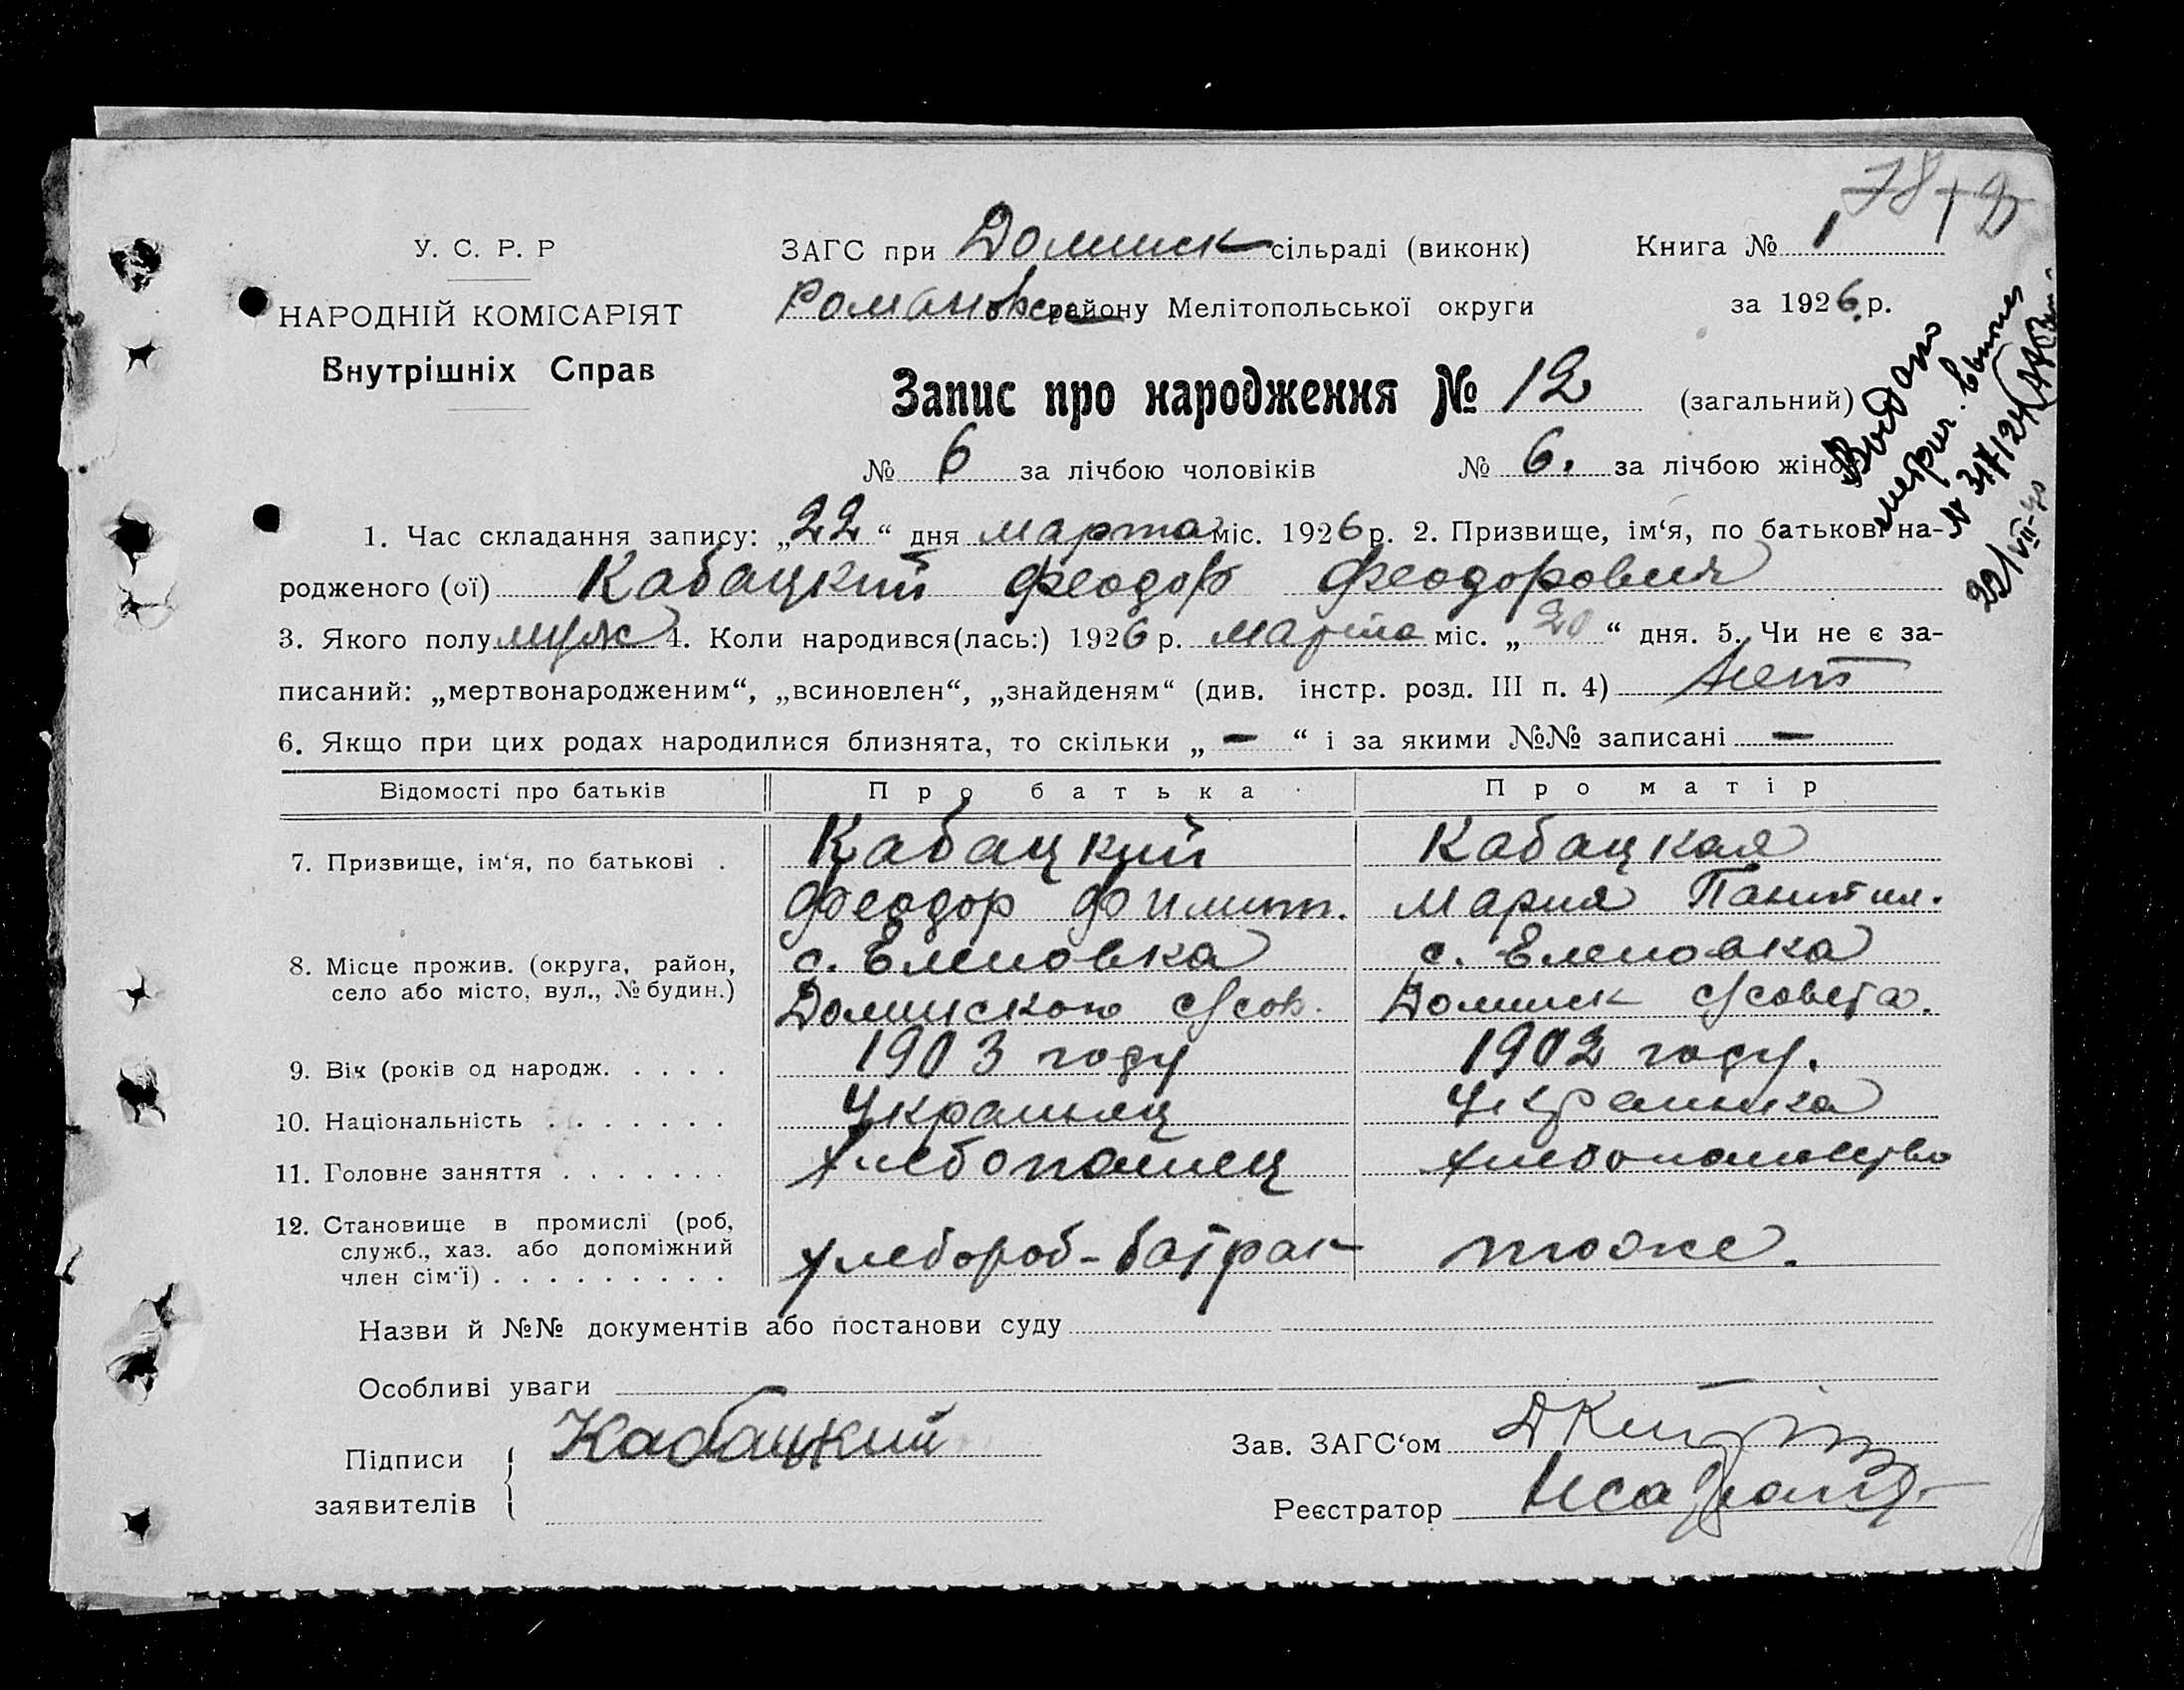 78
У. С. Р. Р
ЗАГС при Доминск сільраді (виконк)
Книга № 1
НАРОДНІЙ КОМІСАРІЯТ
Романовск району Мелітопольської округи
за 1926 р.
Внутрішніх Справ
Запис про народження № 12 (загальний)
№ 6 за лічбою чоловіків № 6. за лічбою жінок
Выдано
метрич.
22/VII-40
1. Час складання запису: „22“ дня марта міс. 1926 р. 2. Призвище, ім‘я, по батькові на-
родженого (ої) Кабацкий Феодор Феодорович
3. Якого полу муж 4. Коли народився(лась:) 1926 р. Марта міс. „20“ дня. 5. Чи не є за-
писаний: „мертвонародженим“, „всиновлен“, „знайденям“ (див. інстр. розд. III п. 4) Нет
6. Якщо при цих родах народилися близнята, то скільки „ — “ і за якими №№ записані —
Відомості про батьків Про батька Про матір
7. Призвище, ім‘я, по батькові . Кабацкий Кабацкая
Феодор Филип. Мария
8. Місце прожив. (округа, район, с. Еленовка с. Еленовка
село або місто, вул., № будин.) Доминского с/сов. Доминск с/совета.
9. Вік (років од народж. . . . . 1903 году 1902 году.
10. Національність . . . . . . . Украинец Украинка
11. Головне заняття . . . . . . . Хлебопашец хлебопашество
12. Становище в промислі (роб,
служб., хаз. або допоміжний
член сім‘ї) . . . . . . . . . хлебороб-батрак тоже.
Назви й №№ документів або постанови суду
Особливі уваги —
Підписи Кабацкий
заявителів
Зав. ЗАГС‘ом
Реєстратор